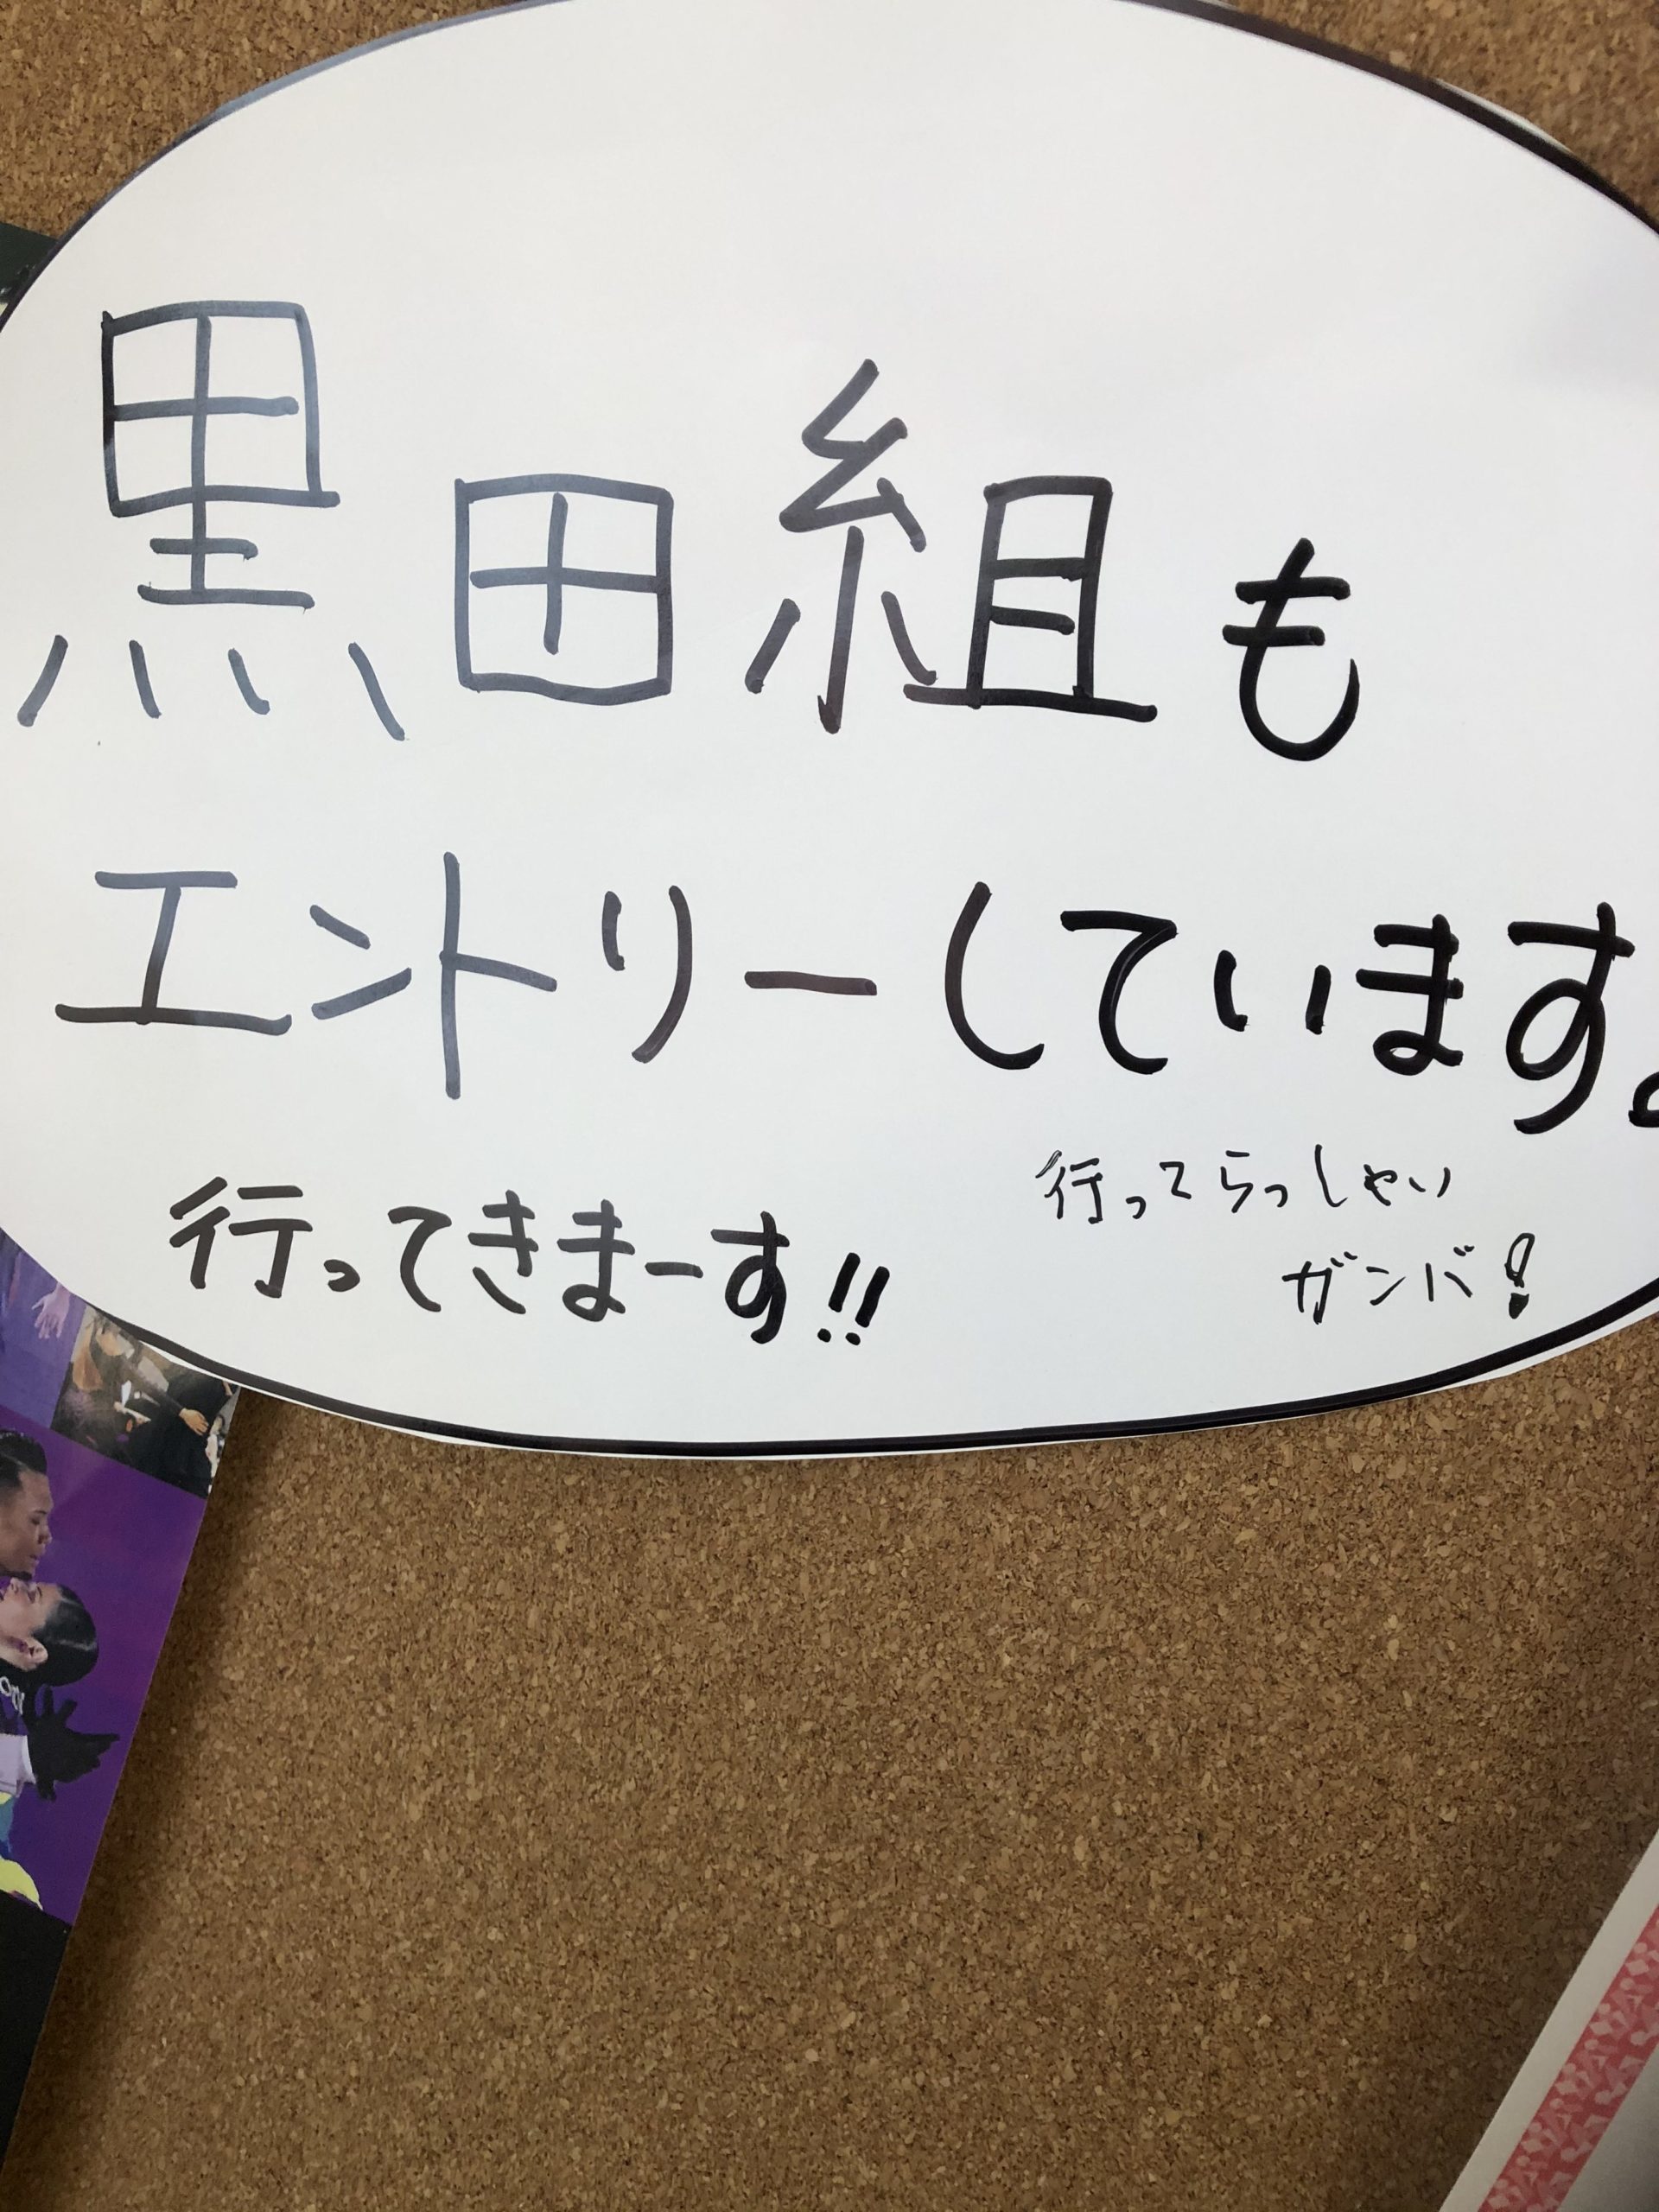 黒田組も
エントリーしています。
行ってきまーす!!
行ってらっしゃい
ガンバ!